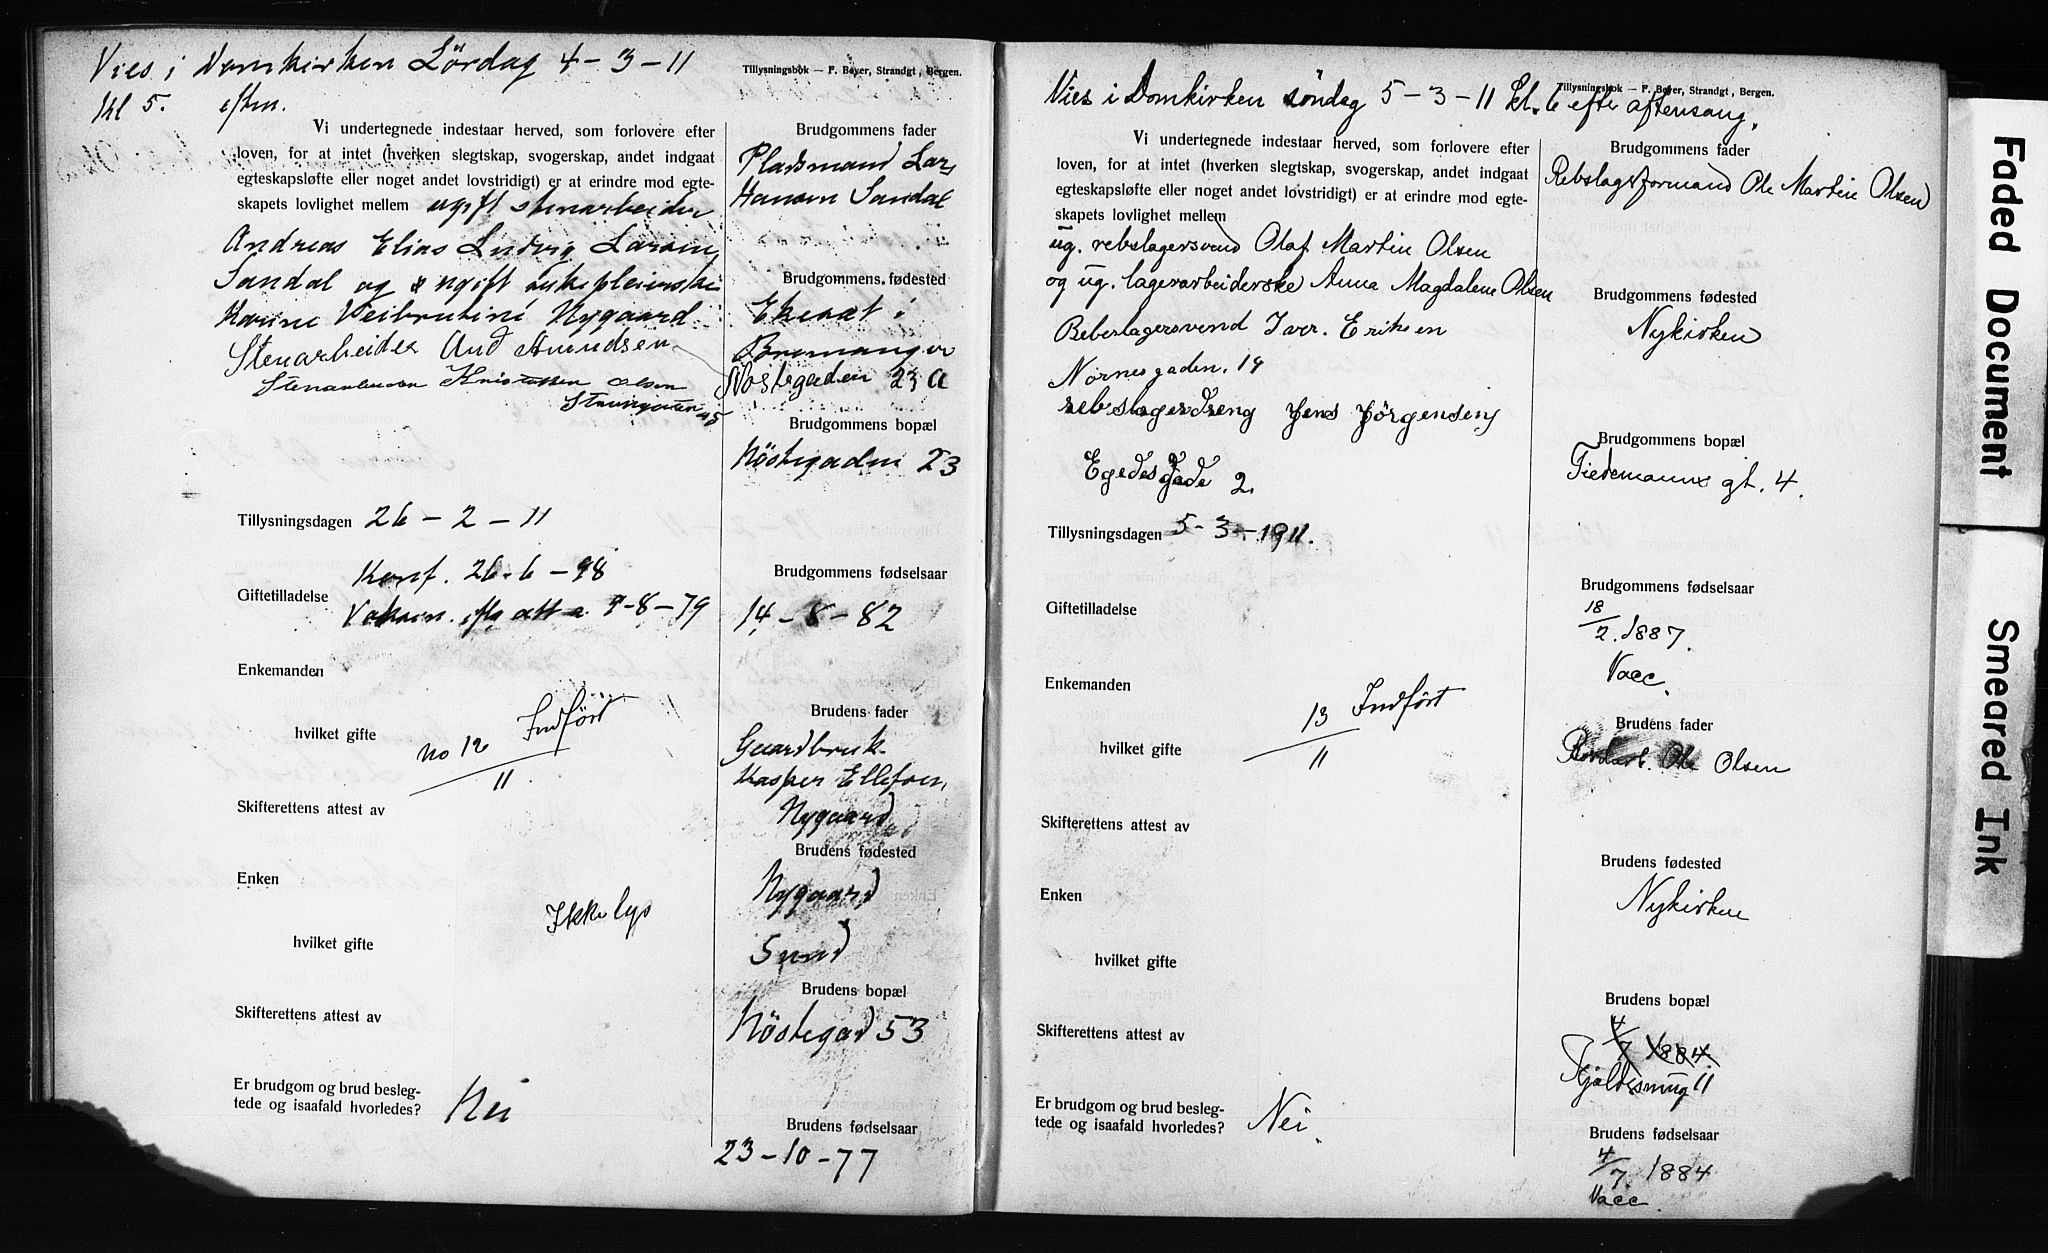 Vies i Domkirken Lördag 4-3-11
Kl 5. eftm.
Tillysningsbok — F. Beyer, Strandgt., Bergen.
Vi undertegnede indestaar herved, som forlovere efter
loven, for at intet (hverken slegtskap, svogerskap, andet indgaat
egteskapsløfte eller noget andet lovstridigt) er at erindre mod egte-
skapets lovlighet mellem ugift stenarbeider
Andreas Elias Ludvig Larsen
Sandal og ugift
Nygaard
Stenarbeider And Amundsen
Nostegaden 23 a
Stenarbeider Kristoffer Olsen
45
Tillysningsdagen 26-2-11
Konf. 26-6-98
Giftetilladelse
Vaksin. iflg att a 9-8-79
Enkemanden
hvilket gifte
no 12 Indført
11
Skifterettens attest av
Enken
Ikke lys
hvilket gifte
Skifterettens attest av
Er brudgom og brud besleg-
tede og isaafald hvorledes? Nei
Brudgommens fader
Pladsmand Lars
Hansen Sandal
Brudgommens fødested
i
Bremanger
Brudgommens bopæl
Nöstegaden 23
Brudgommens fødselsaar
14-8-82
Brudens fader
Gaardbruk.
Kasper Ellefsen
Nygaard
Brudens fødested
Nygaard
Sund
Brudens bopæl
Nöstegad 53
Brudens fødselsaar
23-10-77
Vies i Domkirken söndag 5-3-11 kl. 6 efter aftensang.
Tillysningsbok — F. Beyer, Strandgt., Bergen.
Vi undertegnede indestaar herved, som forlovere efter
loven, for at intet (hverken slegtskap, svogerskap, andet indgaat
egteskapsløfte eller noget andet lovstridigt) er at erindre mod egte-
skapets lovlighet mellem
ug. rebslagersvend Olaf Martin Olsen
og ug. lagerarbeiderske Anna Magdalene Olsen
Rebeslagersvend Ivar. Eriksen
Nornesgaden. 14
rebslagerdreng Jens Jørgensen
Egedes Gade 2.
Tillysningsdagen 5-3-1911.
Giftetilladelse
Enkemanden
hvilket gifte
13 Indført
11
Skifterettens attest av
Enken
hvilket gifte
Skifterettens attest av
Er brudgom og brud besleg-
tede og isaafald hvorledes? Nei.
Brudgommens fader
Rebslagerformand Ole Martin Olsen
Brudgommens fødested
Nykirken
Brudgommens bopæl
Tiedemanns gt. 4.
Brudgommens fødselsaar
18/2. 1887.
Vacc.
Brudens fader
Ole Olsen
Brudens fødested
Nykirken
Brudens bopæl
4/7 1884.
Kjeldesmug 11
Brudens fødselsaar
4/7. 1884
Vacc.
Faded Document
Smeared Ink